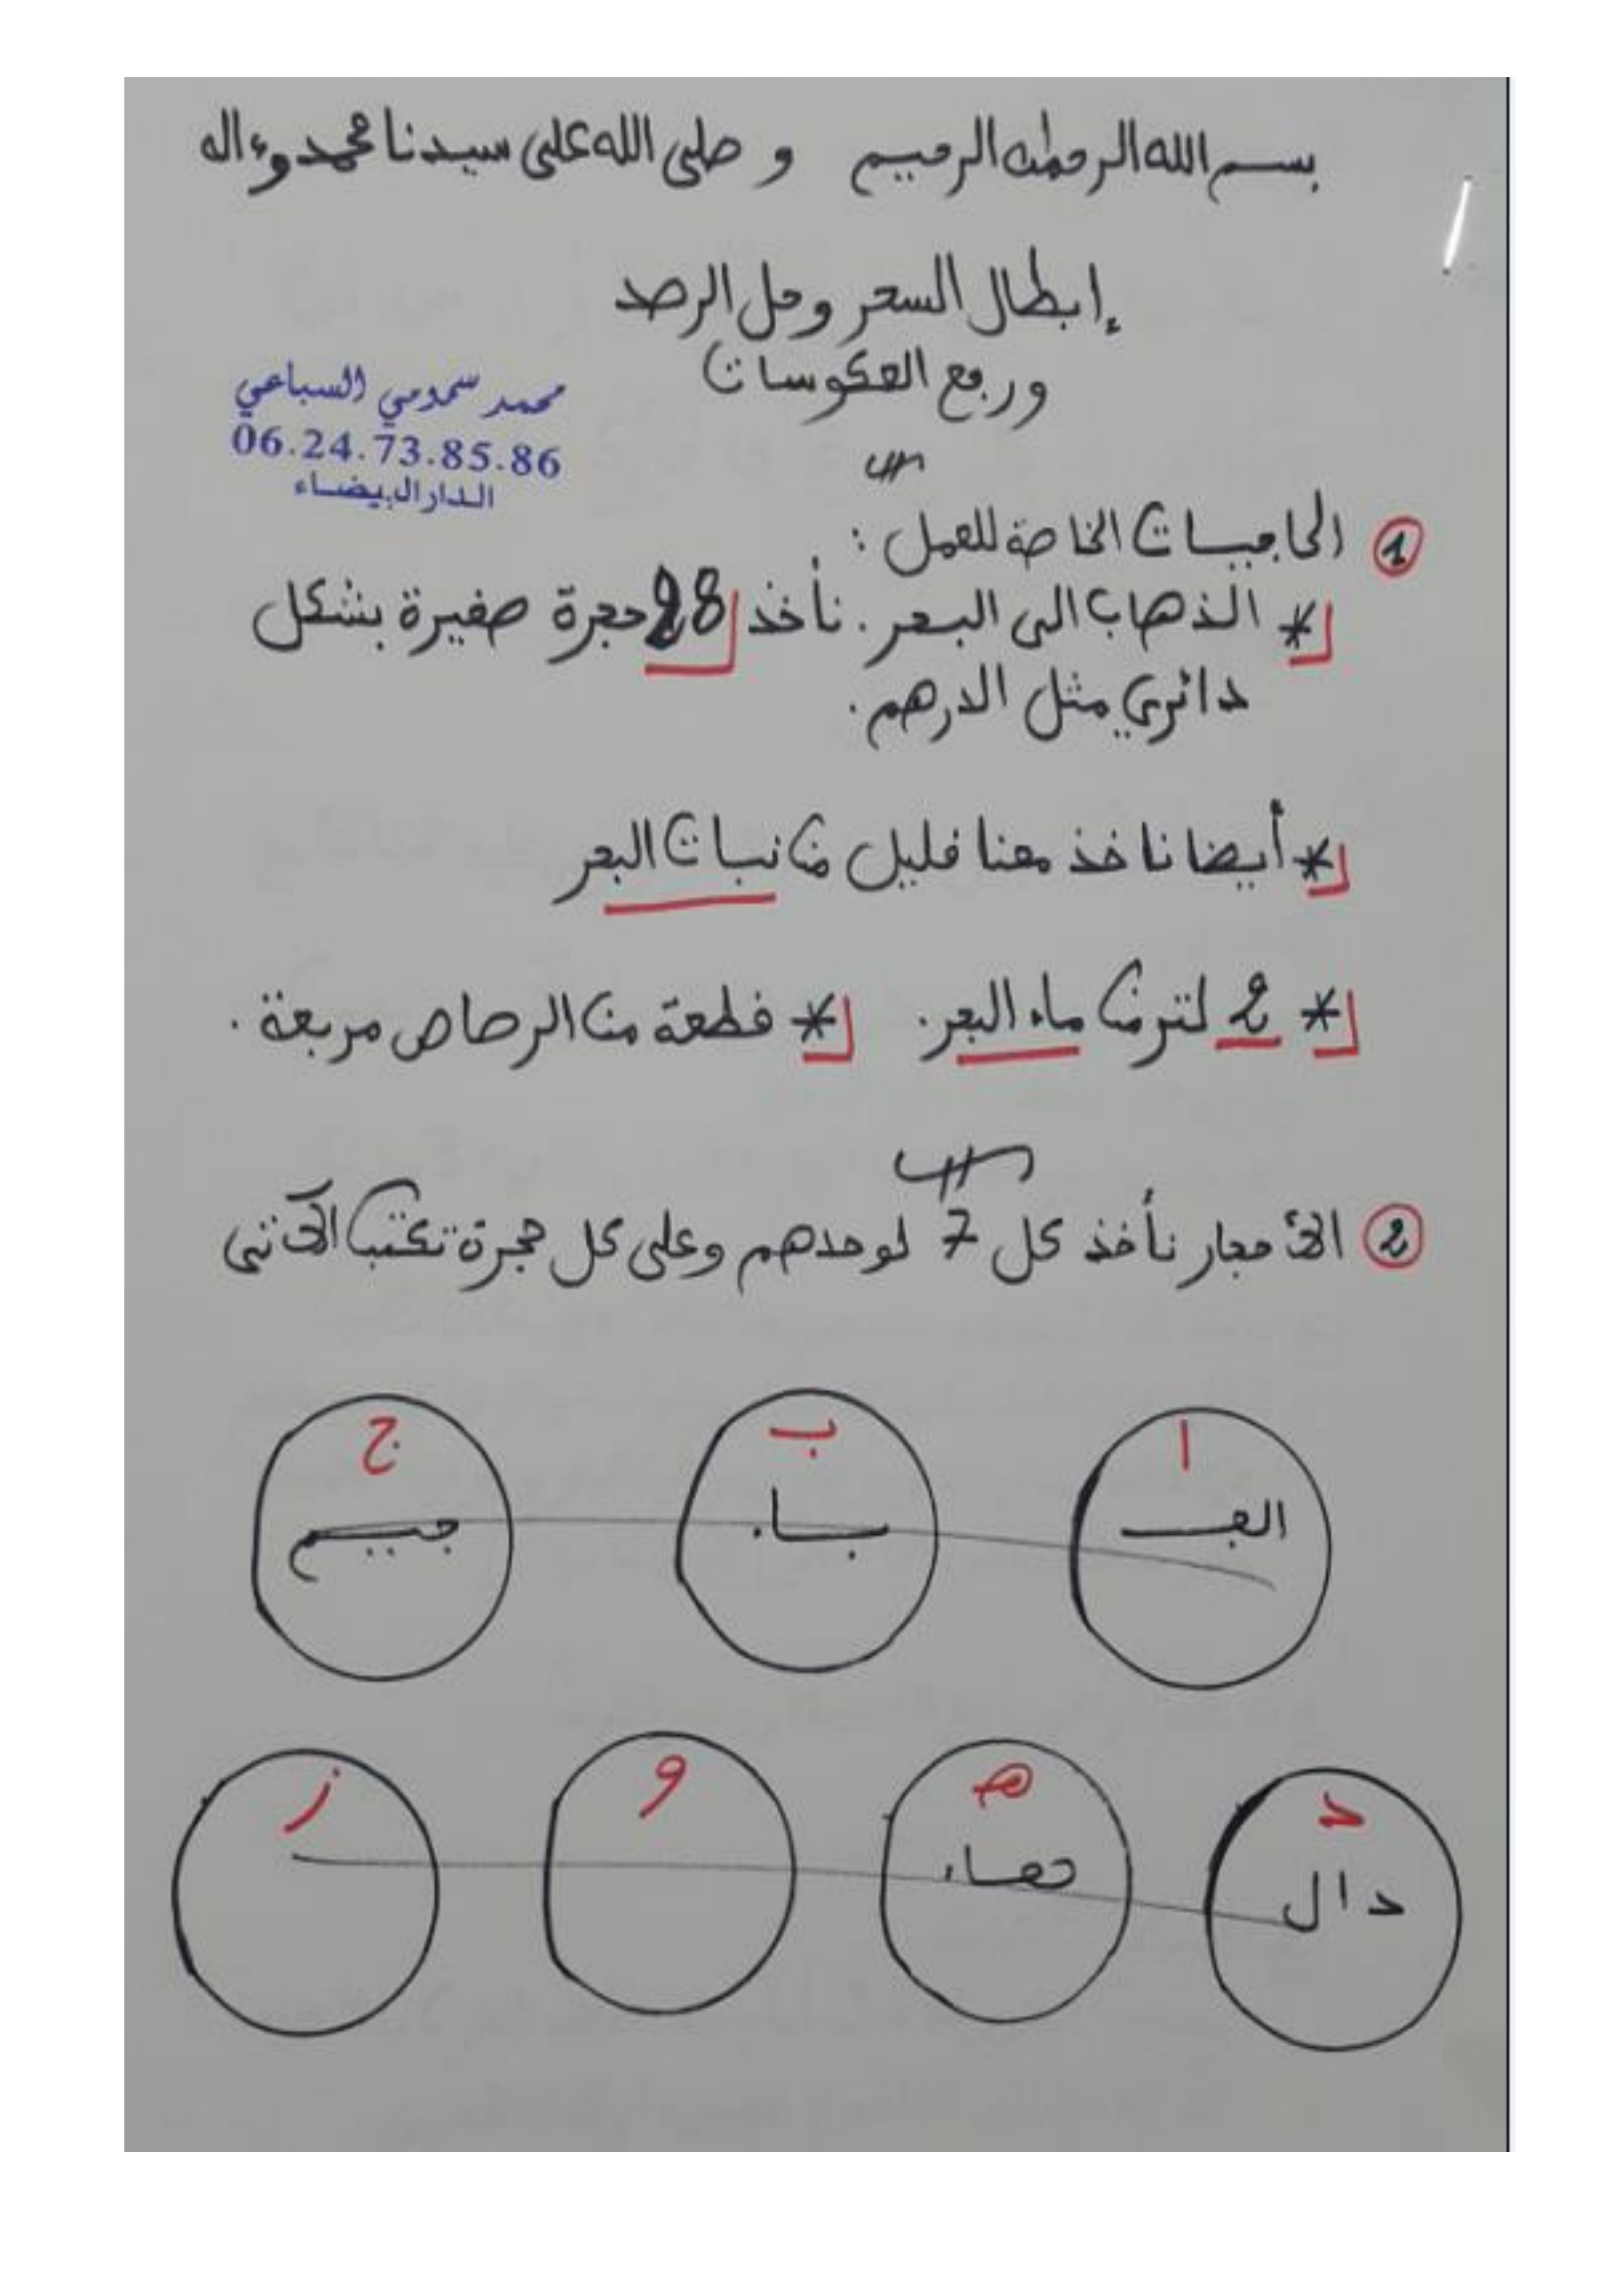 بسم الله الرحمان الرحيم وصلى الله على سيدنا محمد وءاله
إبطال السحر وحل الرصد
ورفع العكوسات
محمد سمومي السباعي
06.24.73.85.86
الدار البيضاء
1 الحاجيات الخاصة للعمل :
* الذهاب الى البحر. نأخذ 28 حجرة صغيرة بشكل
دائري مثل الدرهم.
* أيضا ناخذ معنا قليل من نبات البحر
* 2 لتر من ماء البحر. * قطعة من الرصاص مربعة.
2 الأحجار نأخذ كل 7 لوحدهم وعلى كل حجرة تكتب الآتي
ا ب ج
الف باء جيم
د ه و ز
دال هاء